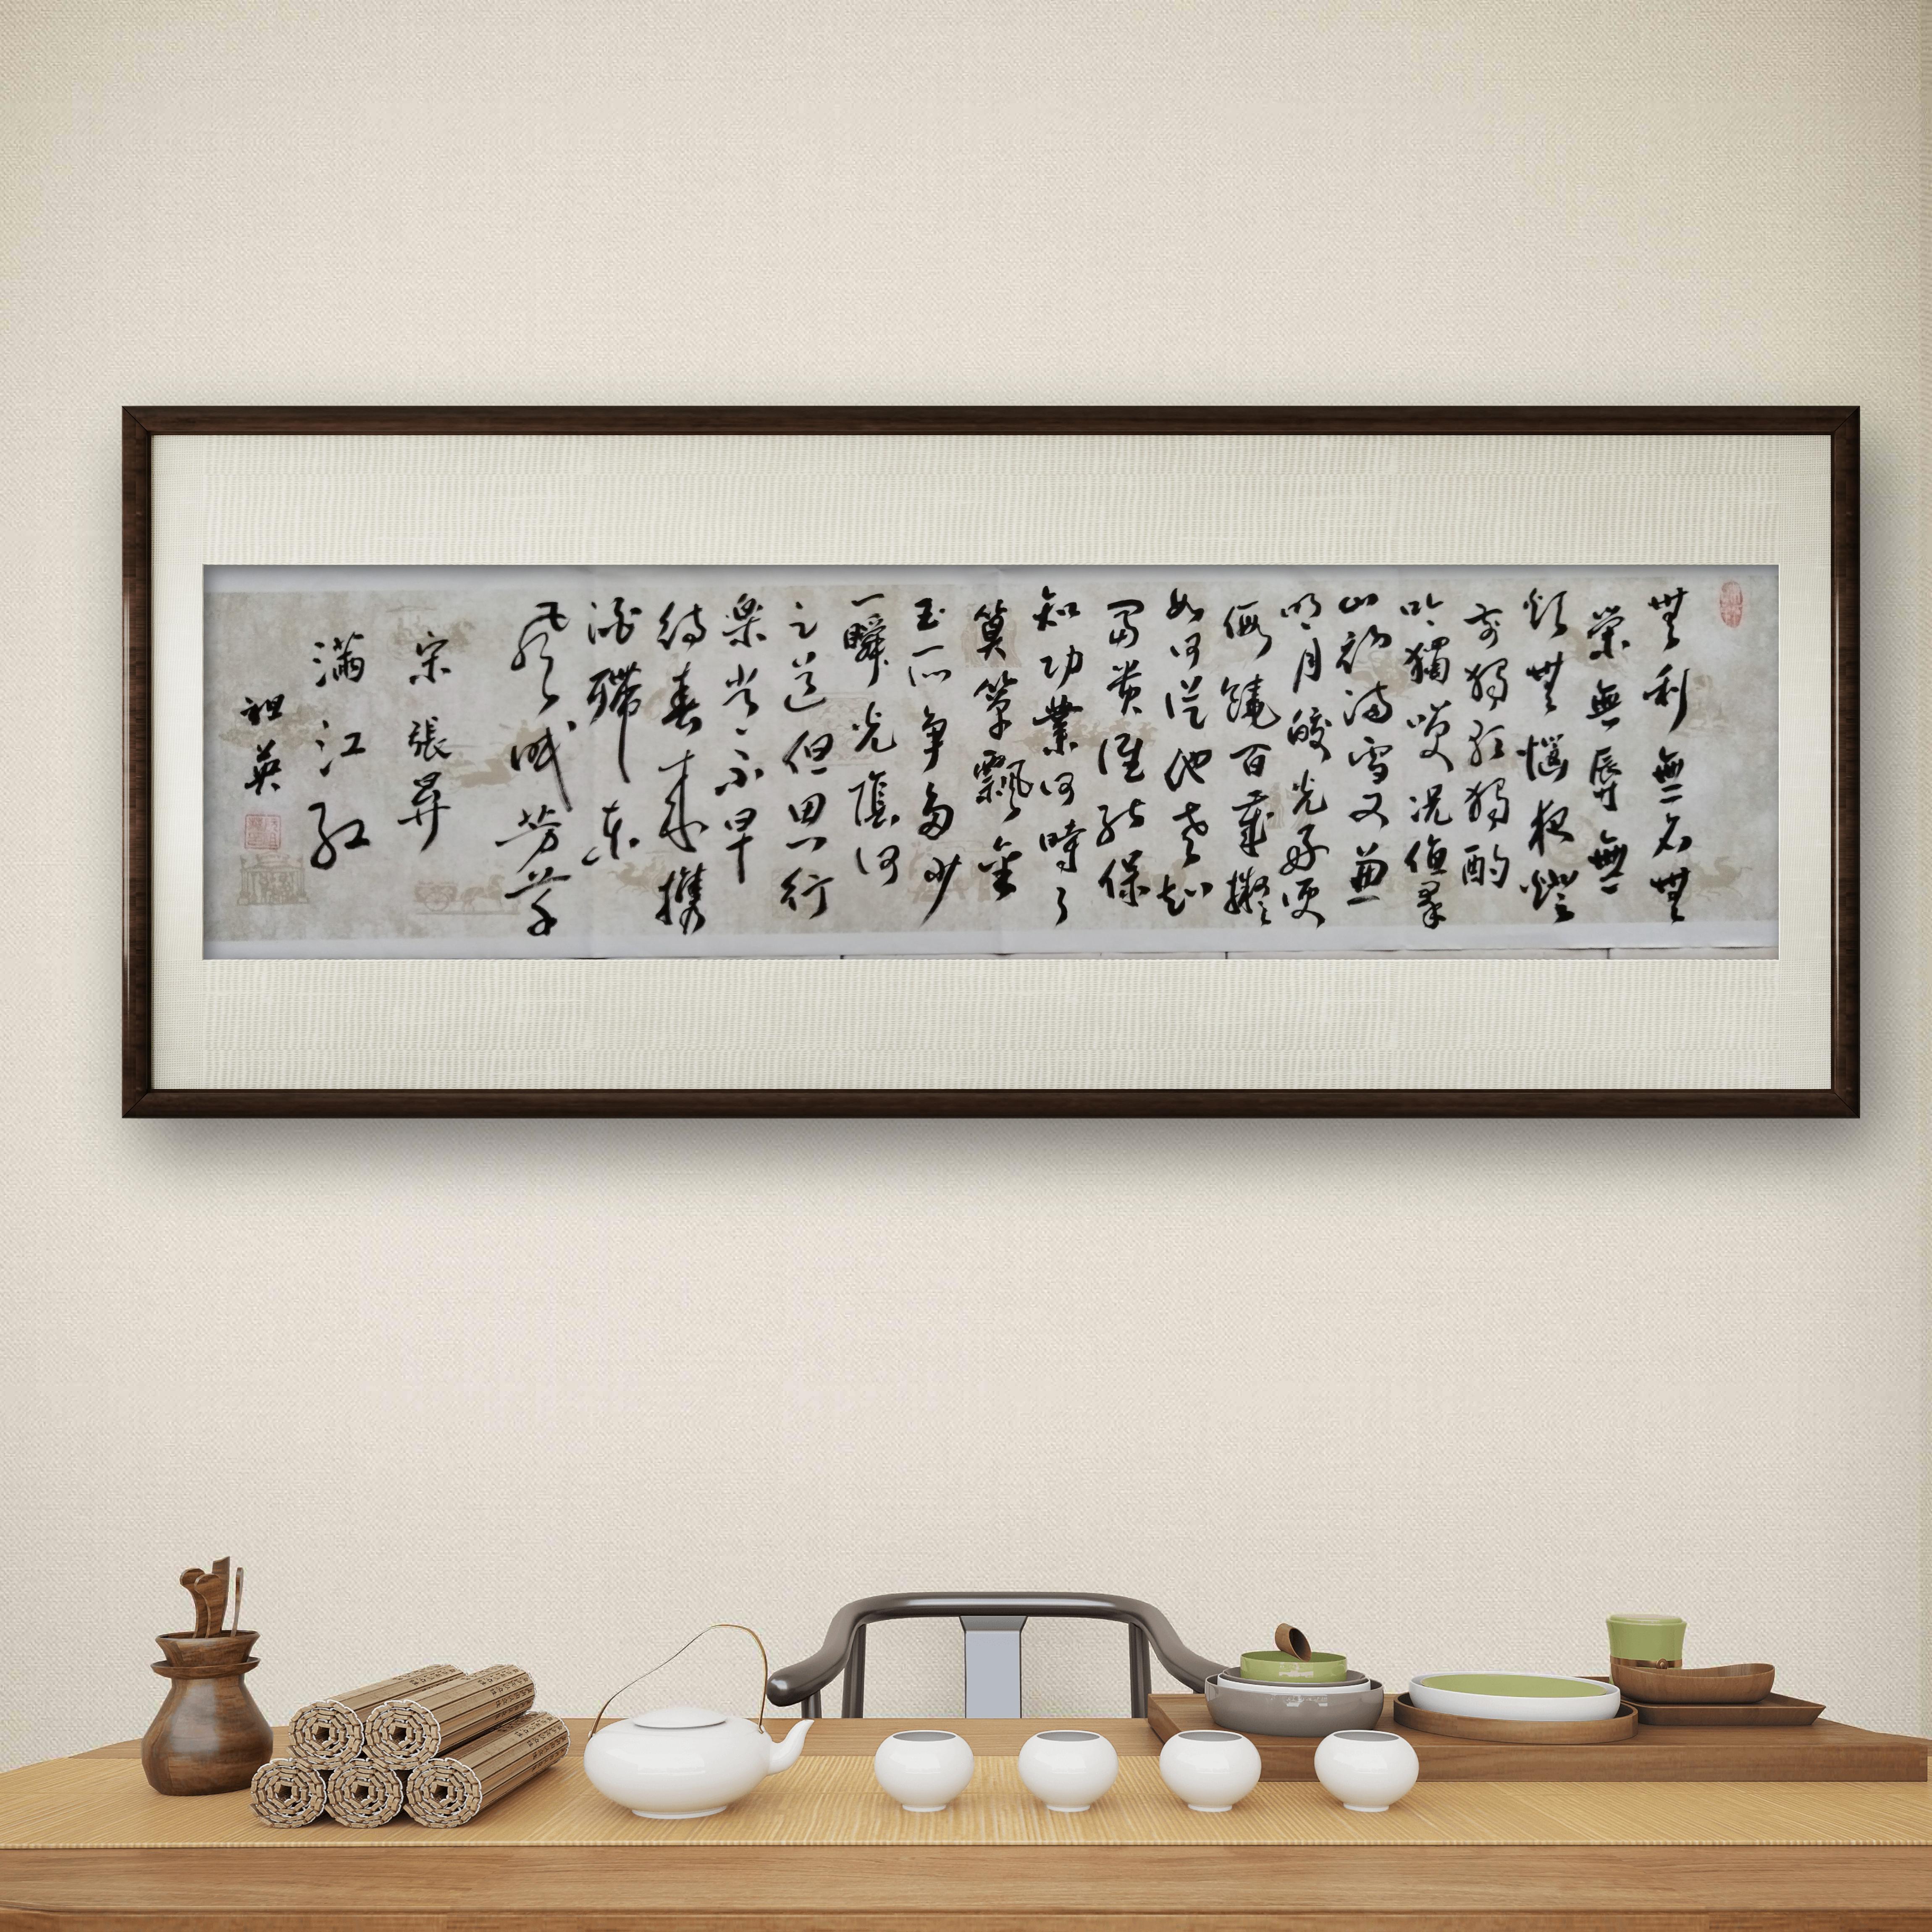 無利無名無
榮無辱無
煩無惱夜燈
前獨歌獨酌
吟獨咲况值羣
山初滿雪又兼
明月皎光好便
假饒百歲擬
如何從他老知
富貴誰能保
知功業何時了
算簞飄金
玉所爭多少
一瞬光陰何
足道但思行
樂常不早
待春來攜
酒殢東
風眠芳草
宋張昪
滿江紅
祖英